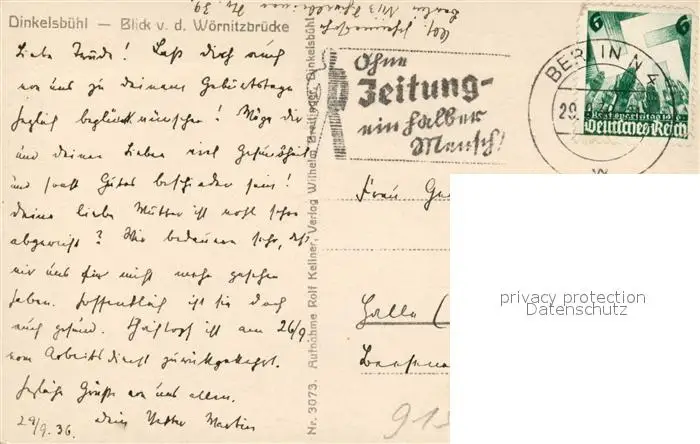 Dinkelsbühl — Blick v. d. Wörnitzbrücke
Liebe Trude! Laß Dich auch
von uns zu deinem Geburtstage
herzlich beglückwünschen! Möge dir
und deinen Lieben viel Gesundheit
und sonst Gutes beschieden sein!
Deine liebe Mutter ist wohl schon
abgereist? Wir bedauern sehr, daß
wir uns gar nicht mehr gesehen
haben. Hoffentlich ist sie doch
auch gesund. Christoph ist am 26/9.
vom Arbeitsdienst zurückgekehrt.
Herzliche Grüße von uns allen.
29/9.36. Dein Vetter Martin
Nr. 3073. Aufnahme Rolf Kellner, Verlag Wilhelm Dinkelsbühl
Berlin
Ohne
Zeitung-
ein halber
Mensch!
BERLIN N 4
29.
w
6 6
Reichsparteitag 1936
Deutsches Reich
Frau
Halle (
915
privacy protection
Datenschutz